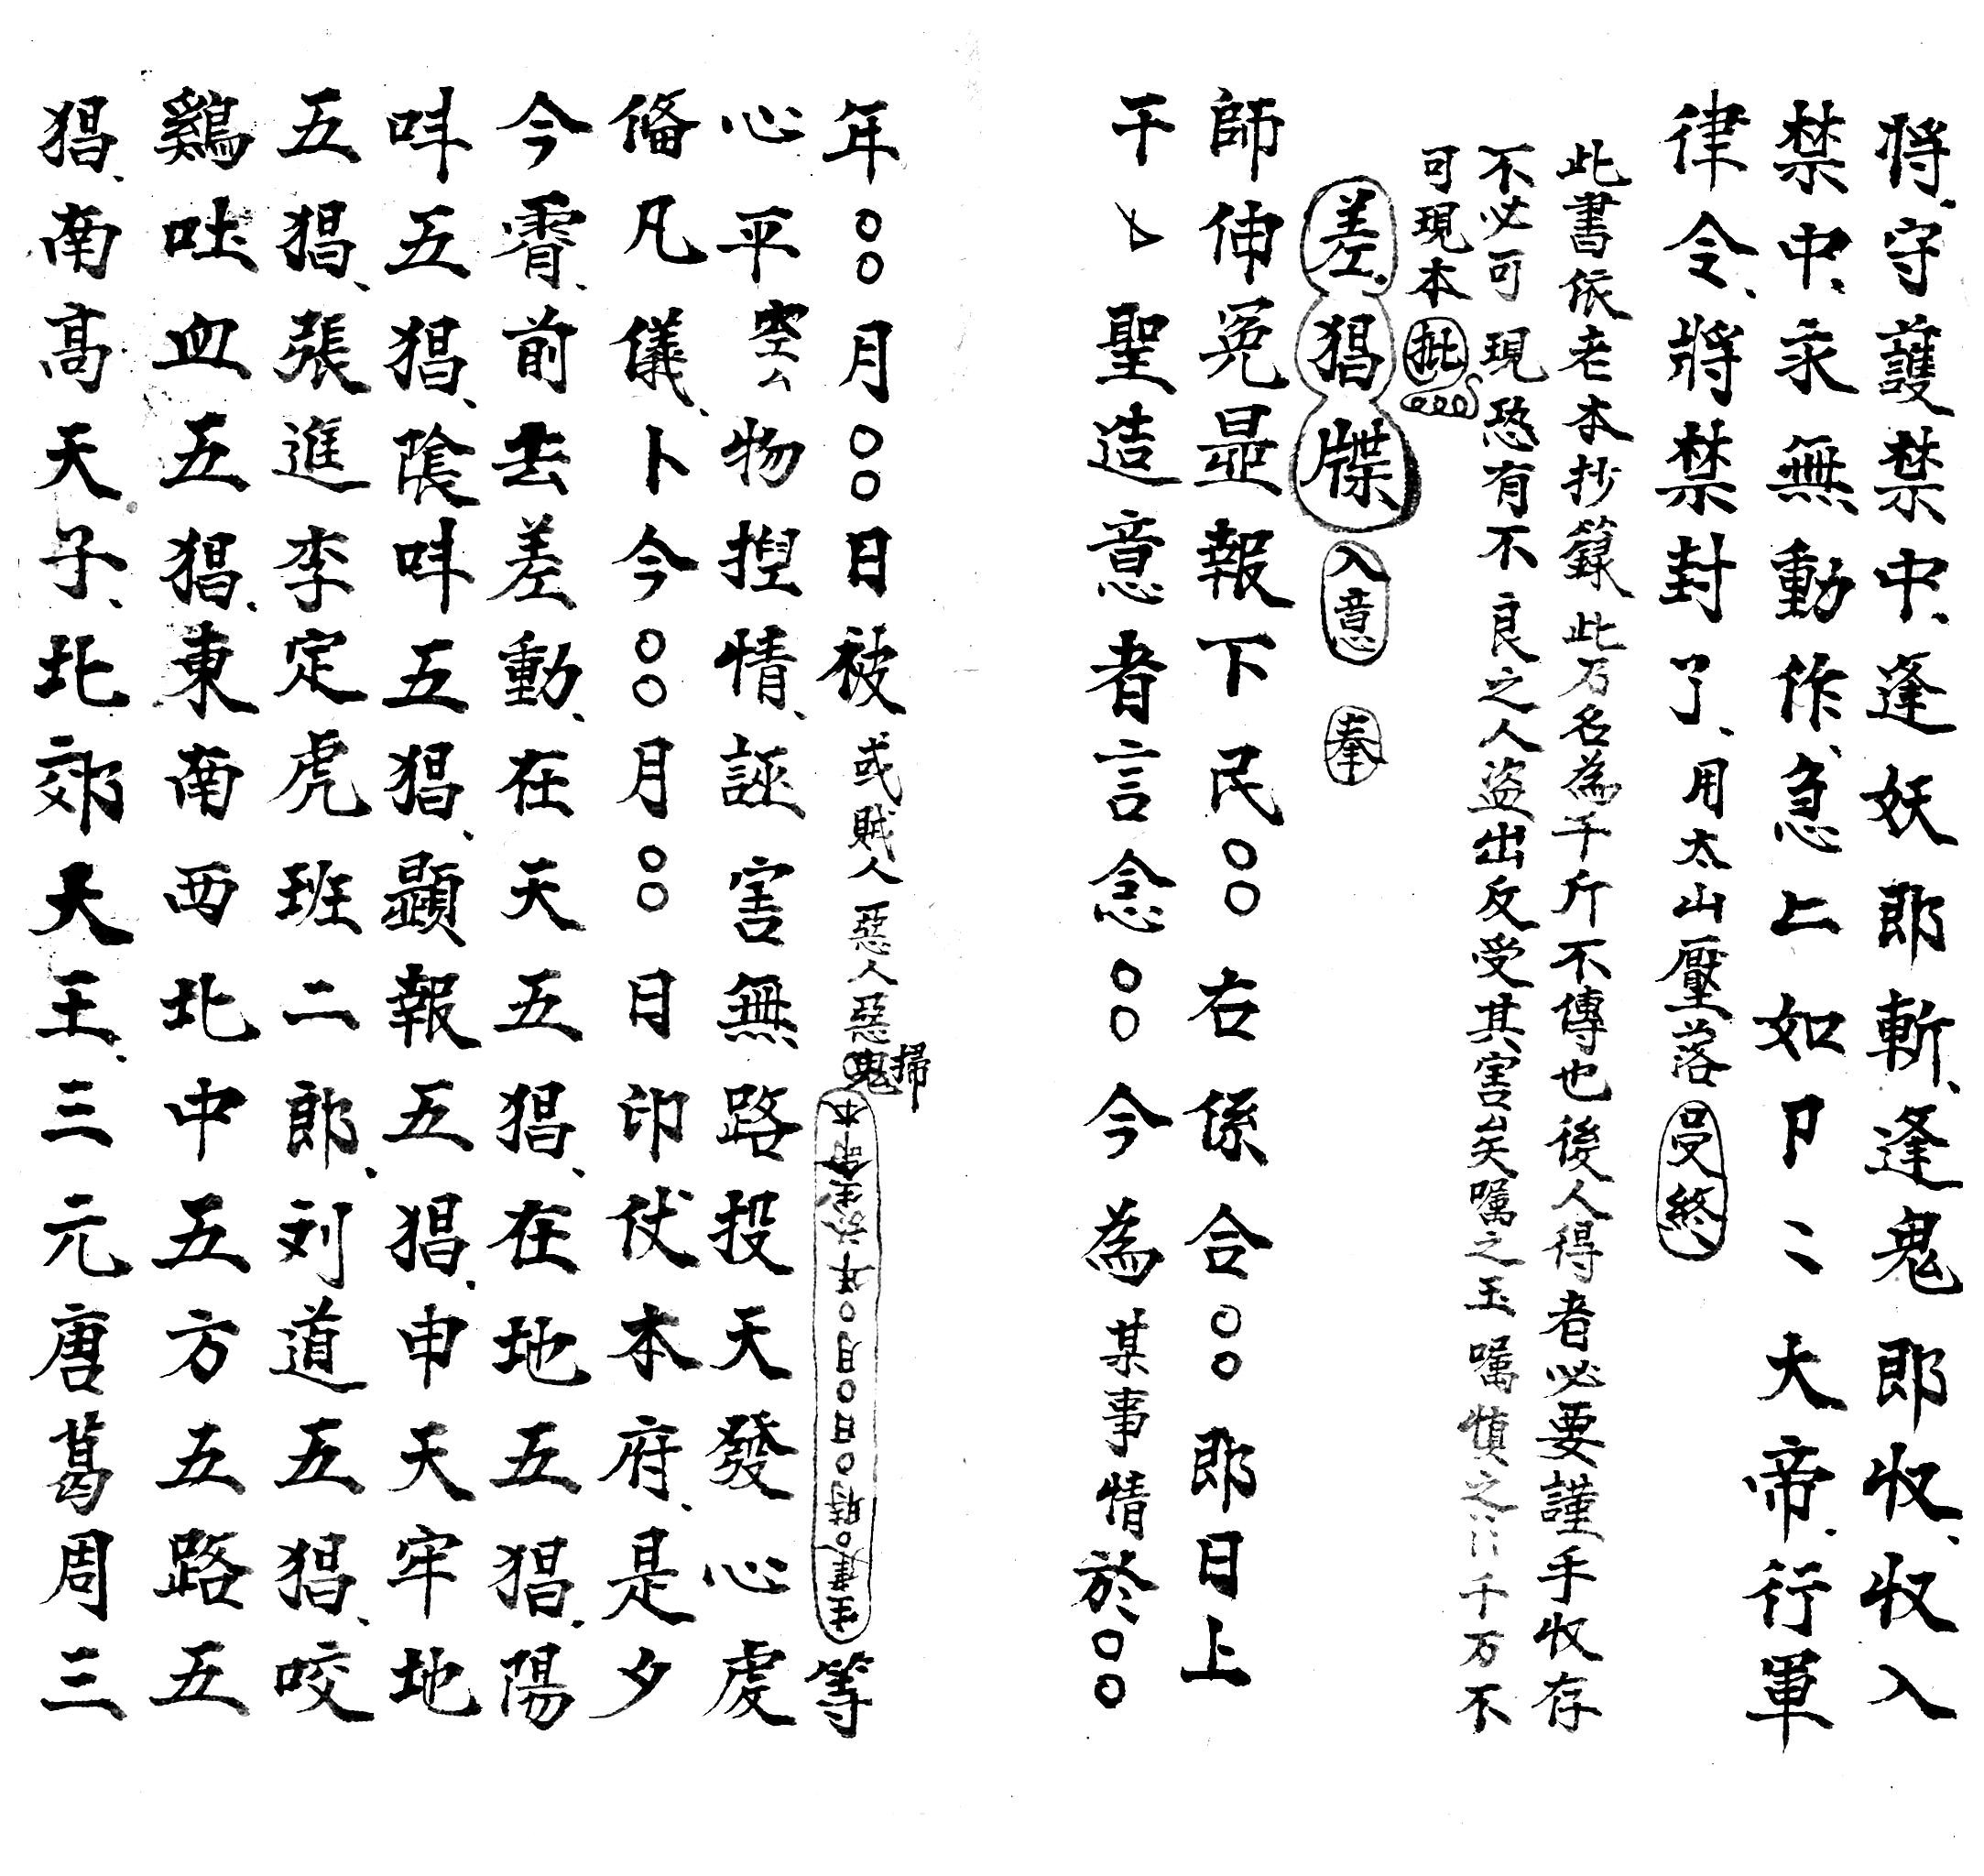 將守護禁中逢妖即斬逢鬼即收收入
禁中永無動作急上如卩〻大帝行軍
律令將禁封了用太山壓落 旻終
此書依老本抄籙此万名為千斤不傳也後人得者必要謹手收存
不必可現恐有不良之人盜出反受其害矣囑之玉囑慎之〻千万不
可現本 批
差猖牒 入意 奉
師伸冤顕報下民〇〇右係合〇〇郎日上
干〻聖造意者言念〇〇今為某事情於〇〇
年〇〇月〇〇日被或賊人惡人惡鬼掃 本命生於年〇月〇日〇時〇建生 等
心平空么物揑情誣害無路投天發心虔
俻凡儀卜今〇〇月〇〇日印伏本府是夕
今霄前去差動在天五猖在地五猖陽
呌五猖陰呌五猖顕報五猖申天牢地
五猖張進李定虎班二郎刘道五猖咬
鷄吐血五猖東南西北中五方五路五
猖南高天子北郊大王三元唐葛周三